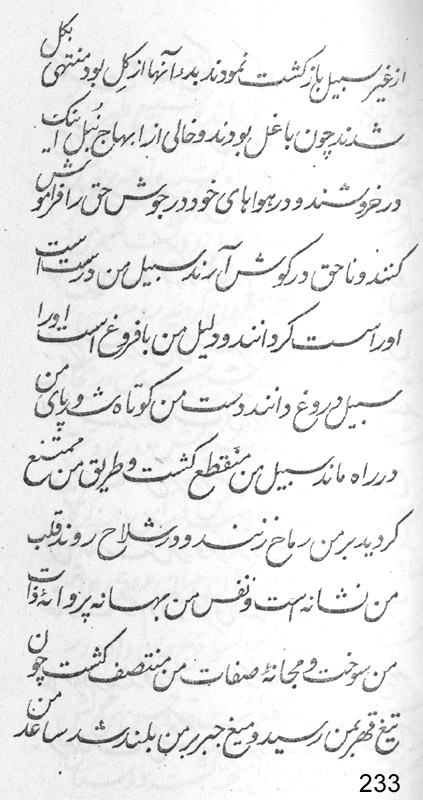 از غیر سبیل بازگشت نمودند بدء آنها از کل بود منتهی بکل
شدند چون باغل بودند و خالی از ابهاج نبل اینک
در خروشند و در هواهای خود در جوش حق را فراموش
کنند و ناحق در گوش آرند سبیل من درست است
او را ست گردانند و دلیل من بافروغ است او را
سبیل دروغ دانند دست من کوتاه شد و پای من
در راه ماند سبیل من منقطع گشت و طریق من ممتنع
گردید بر من رماح زنند و در شلاح روند قلب
من نشانه است و نفس من بهانه پروانهٔ ذات
من سوخت و مجانهٔ صفات من منتصف گشت چون
تیغ قهر بمن رسید و میغ جبر بر من بلند شد ساعد من
233